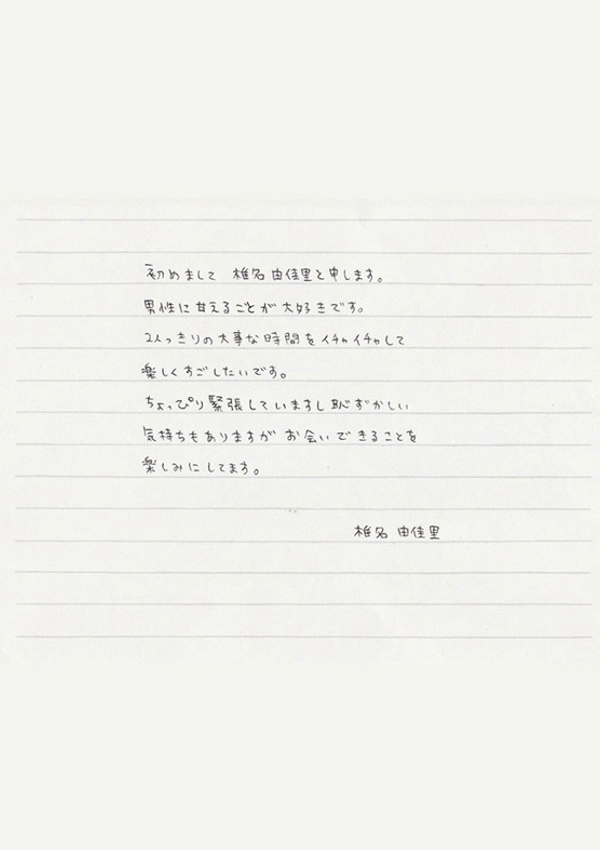 初めまして 椎名由佳里と申します。
男性に甘えることが大好きです。
2人っきりの大事な時間をイチャイチャして
楽しくすごしたいです。
ちょっぴり緊張していますし恥ずかしい
気持ちもありますが お会いできることを
楽しみにしてます。
椎名 由佳里